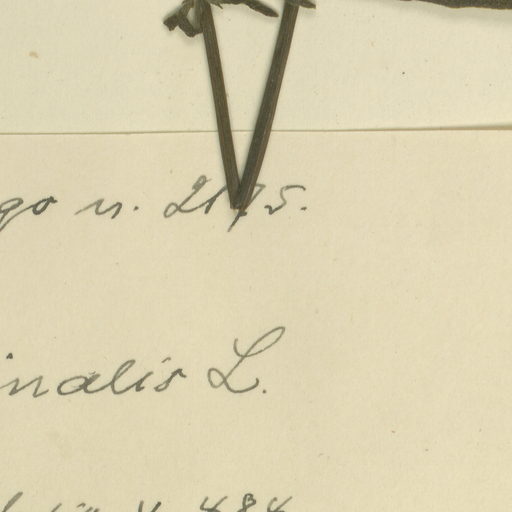 go n. 2175.
inalis L.
484